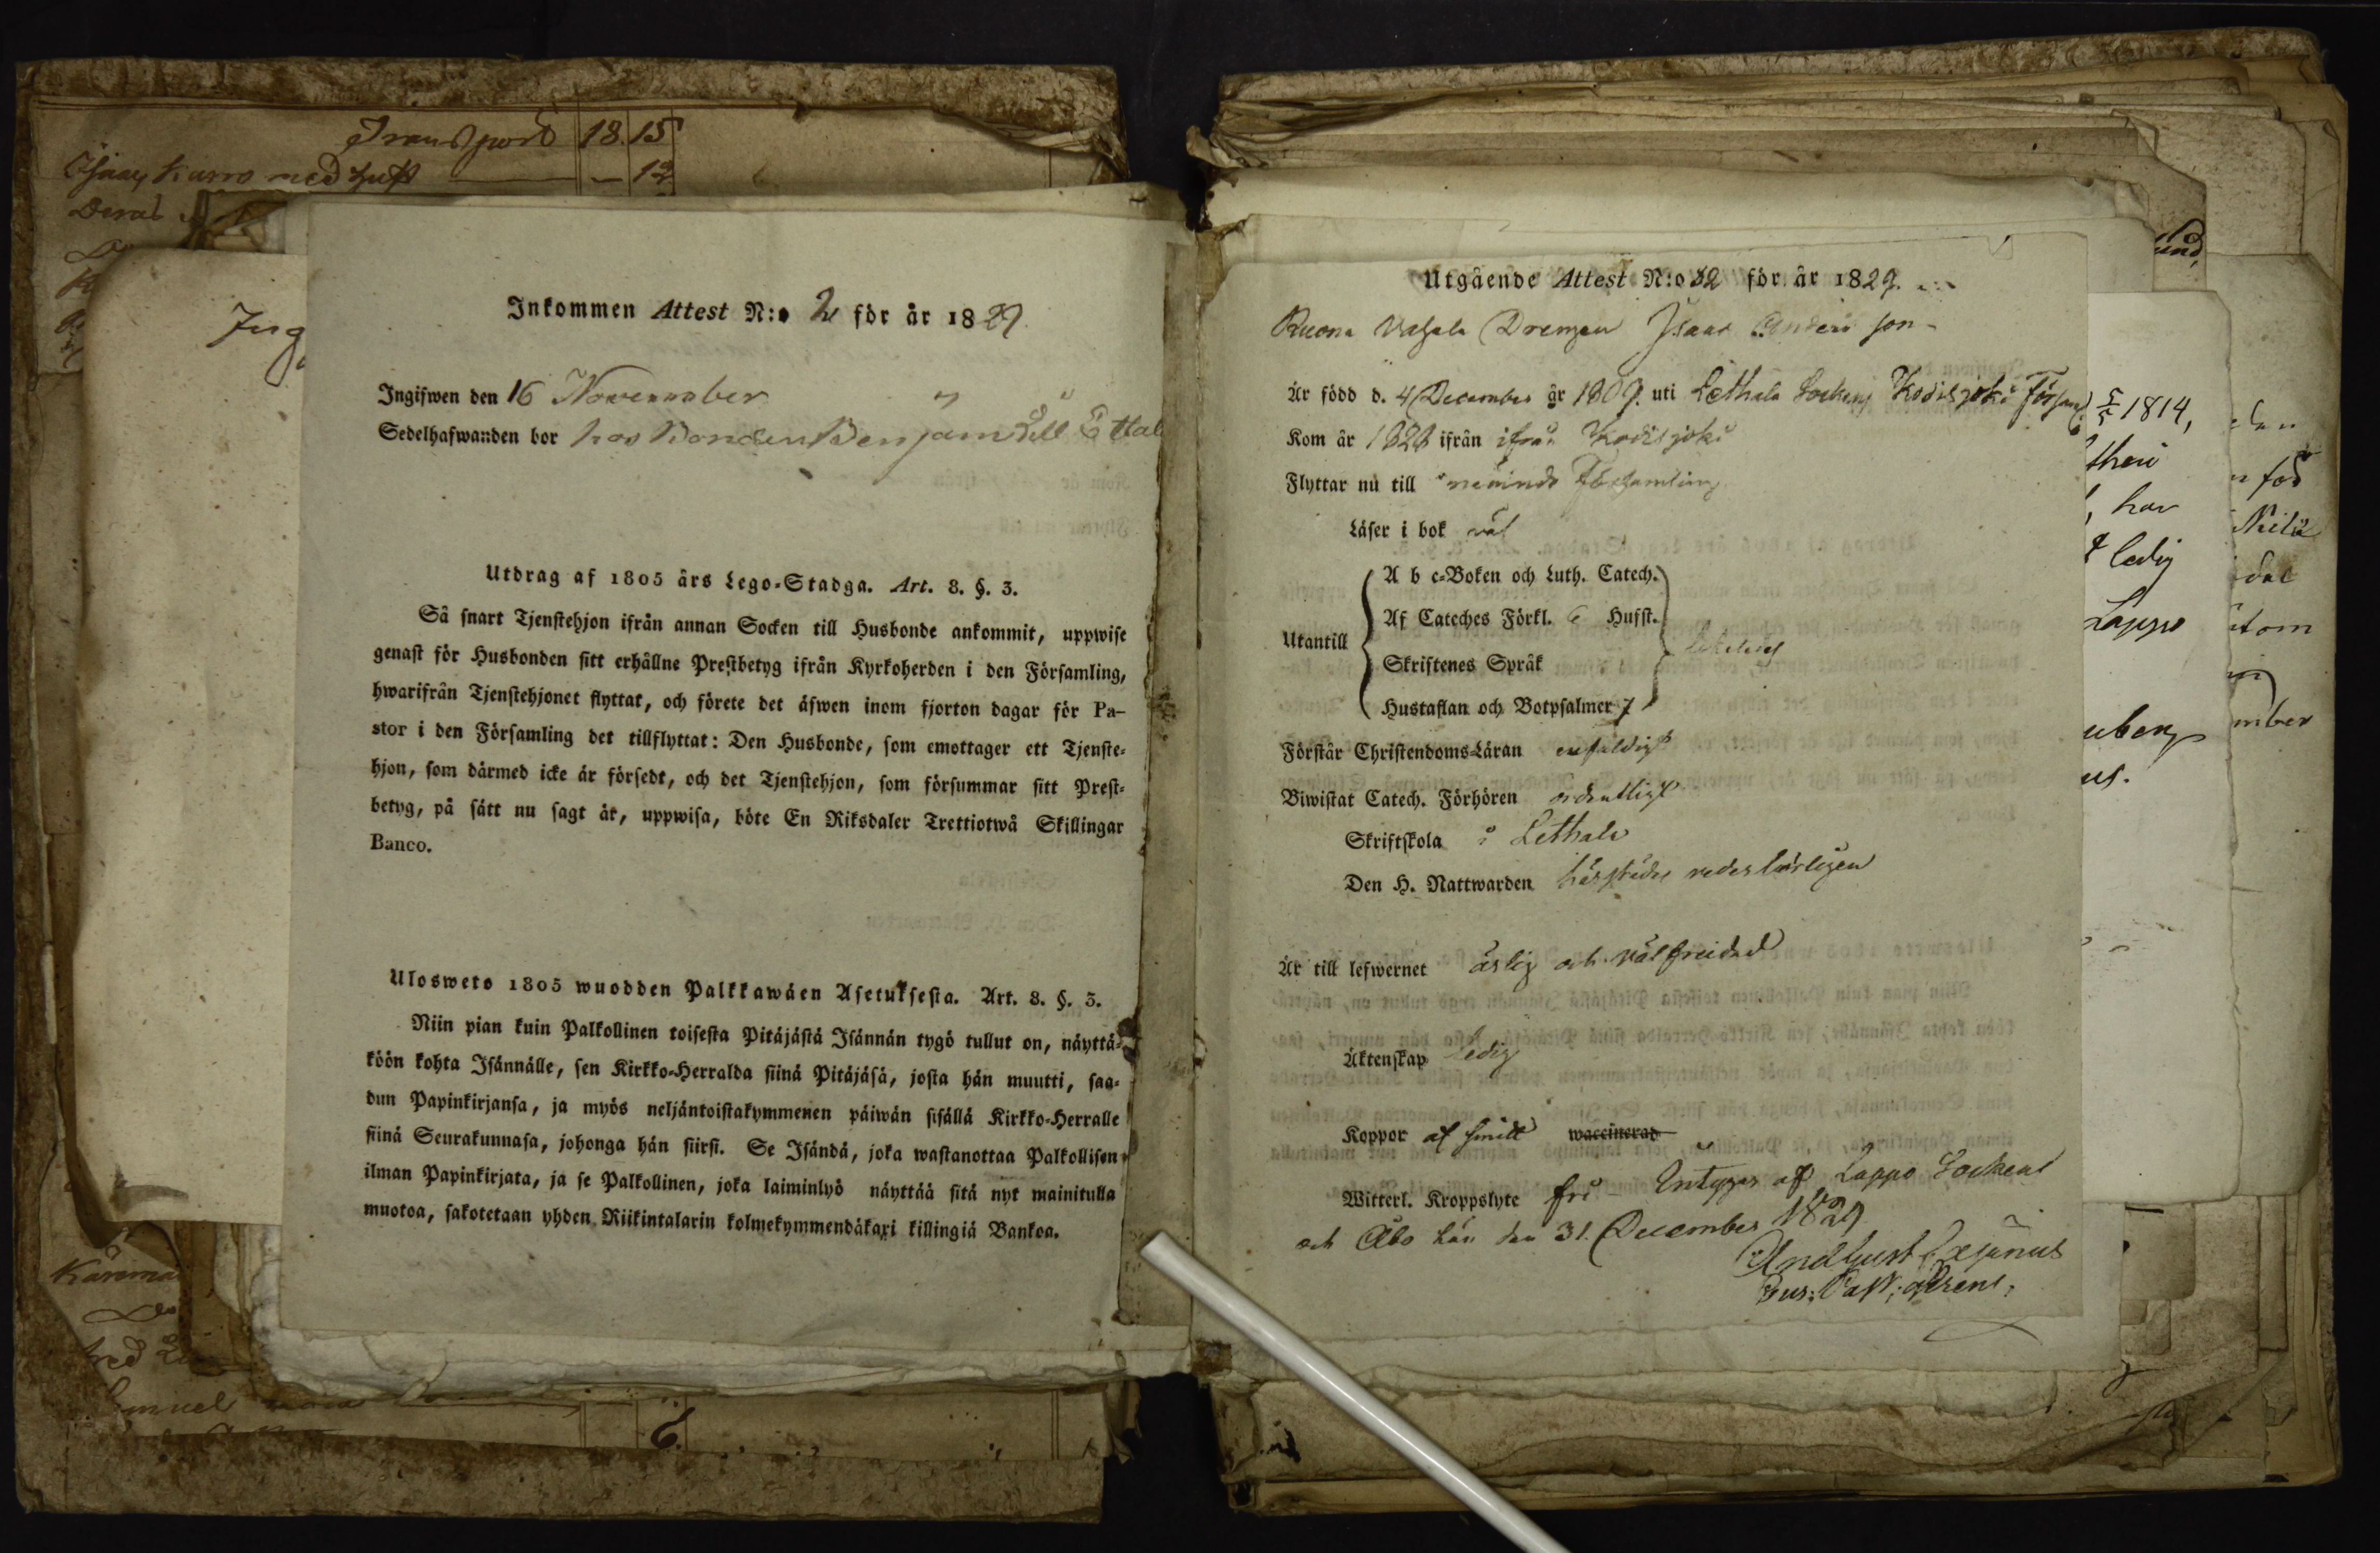 Transport 18. 15
med hust — 12
Inkommen Attest N:o 2 för år 1829
Ingifwen den 16 November
Sedelhafwanden bor hos Bonden Benjam till
Utdrag af 1805 års Lego-Stadga. Art. 8. §. 3.
Så snart Tjenstehjon ifrån annan Socken till Husbonde ankommit, uppwise
genast för Husbonden sitt erhållne Prestbetyg ifrån Kyrkoherden i den Församling,
hwarifrån Tjenstehjonet flyttat, och förete det äfwen inom fjorton dagar för Pa-
stor i den Församling det tillflyttat: Den Husbonde, som emottager ett Tjenste-
hjon, som därmed icke är försedt, och det Tjenstehjon, som försummar sitt Prest-
betyg, på sätt nu sagt är, uppwisa, böte En Riksdaler Trettiotwå Skillingar
Banco.
Ulosweto 1805 wuodden Palkkawäen Asetuksesta. Art. 8. §. 3.
Niin pian kuin Palkollinen toisesta Pitäjästä Isännän tygö tullut on, näyttä-
köön kohta Isännälle, sen Kirkko-Herralda siinä Pitäjäsä, josta hän muutti, saa-
dun Papinkirjansa, ja myös neljäntoistakymmenen päiwän sisällä Kirkko-Herralle
siinä Seurakunnasa, johonga hän siirsi. Se Isändä, joka wastanottaa Palkollisen
ilman Papinkirjata, ja se Palkollinen, joka laiminlyö näyttää sitä nyt mainitulla
muotoa, sakotetaan yhden Riikintalarin kolmekymmendäkaxi killingiä Bankoa.
Samuel
6.
Utgående Attest N:o 12 för år 1829.
Ruona Drengen Isaac Anders son
Är född d. 4 December år 1809. uti Lethala Sockens Kodisjoki Förs
Kom år 1828 ifrån ifrån Kodisjoki
Flyttar nu till nämnde Församling
Läser i bok väl
Utantill
A b c-Boken och Luth. Catech.
Af Cateches Förkl. 6 Hufst.
Skriftenes Språk
Hustaflan och Botpsalmer 7
Förstår Christendoms-Läran enfaldigt
Biwistat Catech. Förhören ordentligt
Skriftskola i Lethala
Den H. Nattwarden härstädes redesbörligen
Är till lefwernet ärlig och välfreidad
Äktenskap ledig
Koppor af smitt waccinerad
Witterl. Kroppslyte fri – Intygar af Lappo Sockens
och Åbo Län den 31 December 1829
1814,
har
ledig
Lappo